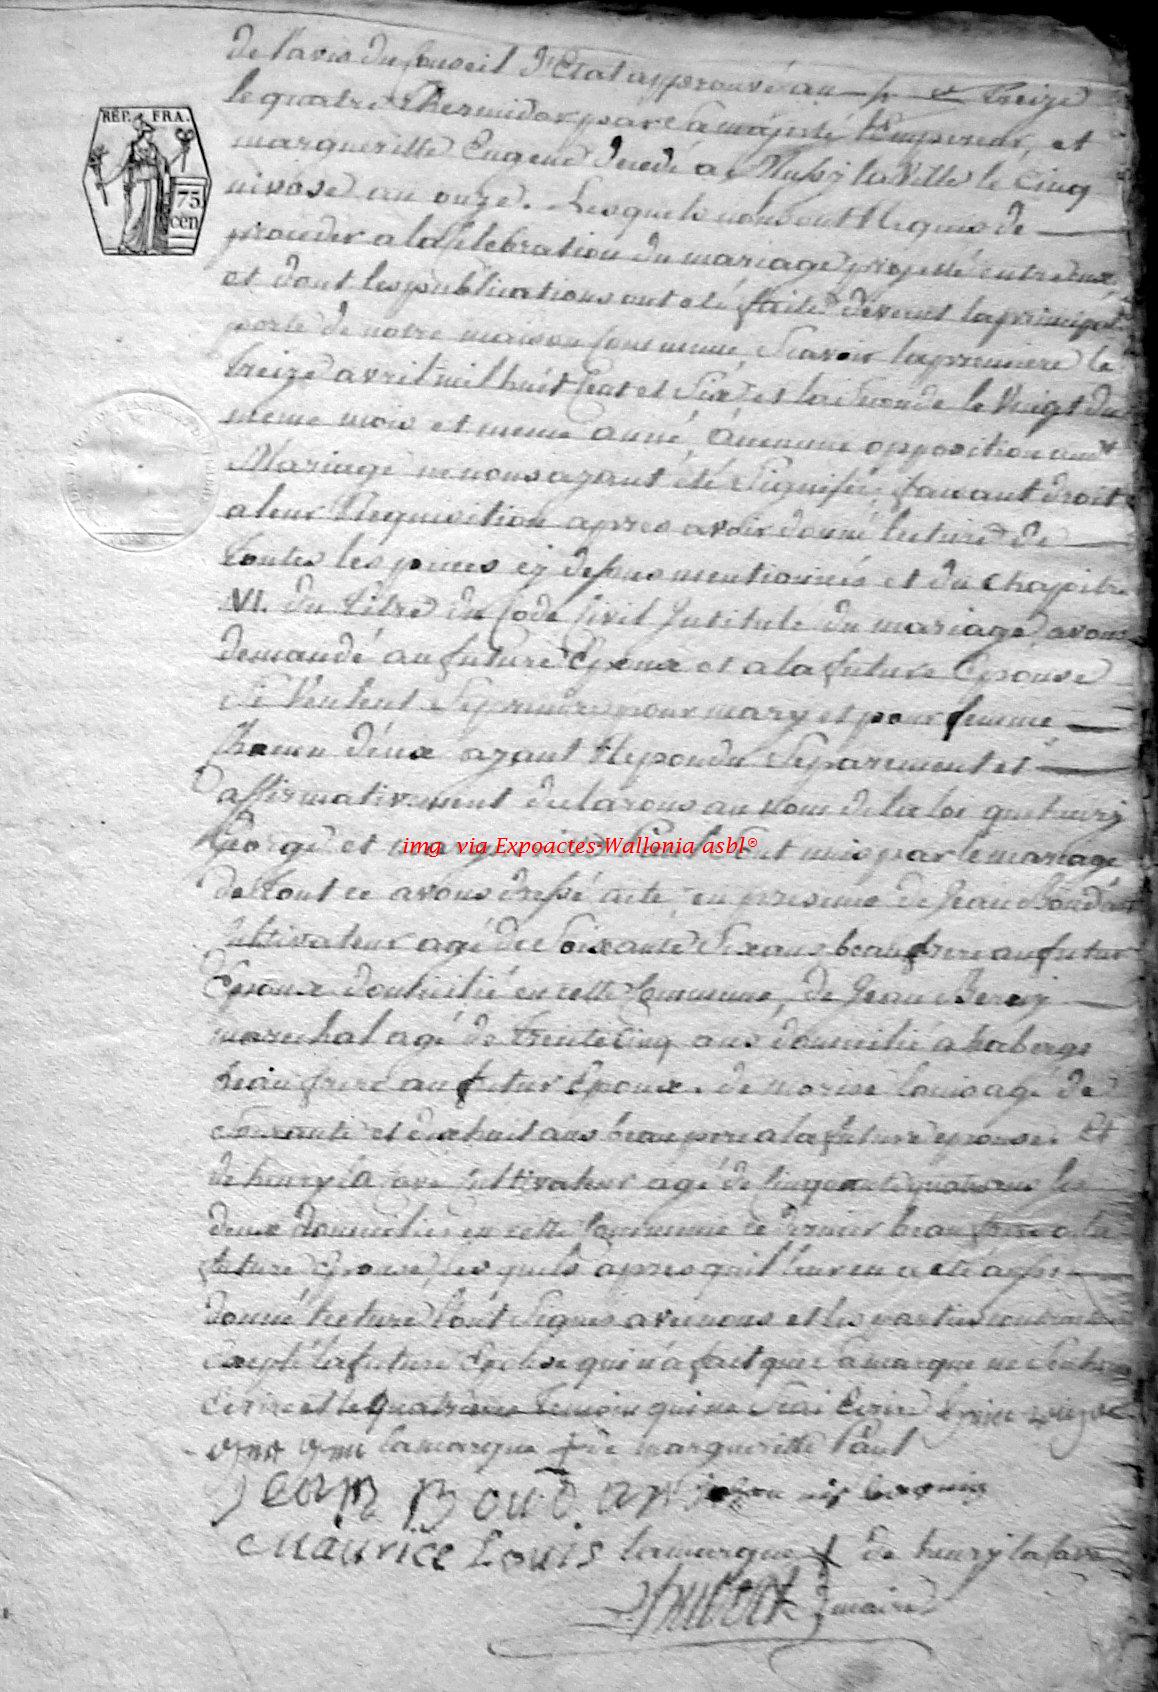 RÉP. FRA.
75
cen
de l'avis du Conseil d'Etat approuvé au treize
le quatre Thermidor par Sa majesté l'Empereur, et
margueritte Eugene decedé a Mussy la Ville le cinq
nivose an onze. Lesquels nous ont Requis de
proceder a la Celebration du mariage projetté entre eux,
et dont les publications ont eté faite devant la principal
porte de notre maison Commune, Scavoir la premiere le
treize avril mil huit Cent et Six et la Seconde le Vingt du
meme mois et meme anné, aucune opposition audt
Mariage ne nous ayant été Signifié, faisant droit
a leur Requisition apres avoir donné lecture de
toutes les pieces cy dessus mentionnés et du Chapitre
VI. du titre du Code Civil Intitulé du mariage, avons
demandé au future Epoux et a la future Epouse
Si Veulent Se prendre pour mary et pour femme,
Chacun d'eux ayant Repondu Separement et
affirmativement declarons au nom de la loi que henry
George et Paul Sont unis par le mariage
img via Expoactes-Wallonia asbl©
de tout ce avons dressé acte, en presence de Jean Boudart
Cultivateur agé de Soixante Six ans beau frere au futur
Epoux domicilié en cette Commune, de Jean
marechal agé de trente Cinq ans domicilié a habergy
beau frere au futur Epoux, de morice louis agé de
Soixante et dix huit ans beau pere a la future epouse. Et
de henry la Cultivateur agé de Cinquante quatre ans les
deux domiciliés en cette Commune ce dernier beau frere a la
future Epouse, les quels apres quil leur en a eté aussi
donné lecture Sont Signés avec nous et les parties contractantes
Excepté la future Epouse qui n'a fait que Sa marque ne Sachant
Ecrire et le quatrieme temoin qui ne Scai Ecrire
la marque + de margueritte Paul
Jean Boudart
Maurice Louis la marque + de henry
hubert maire